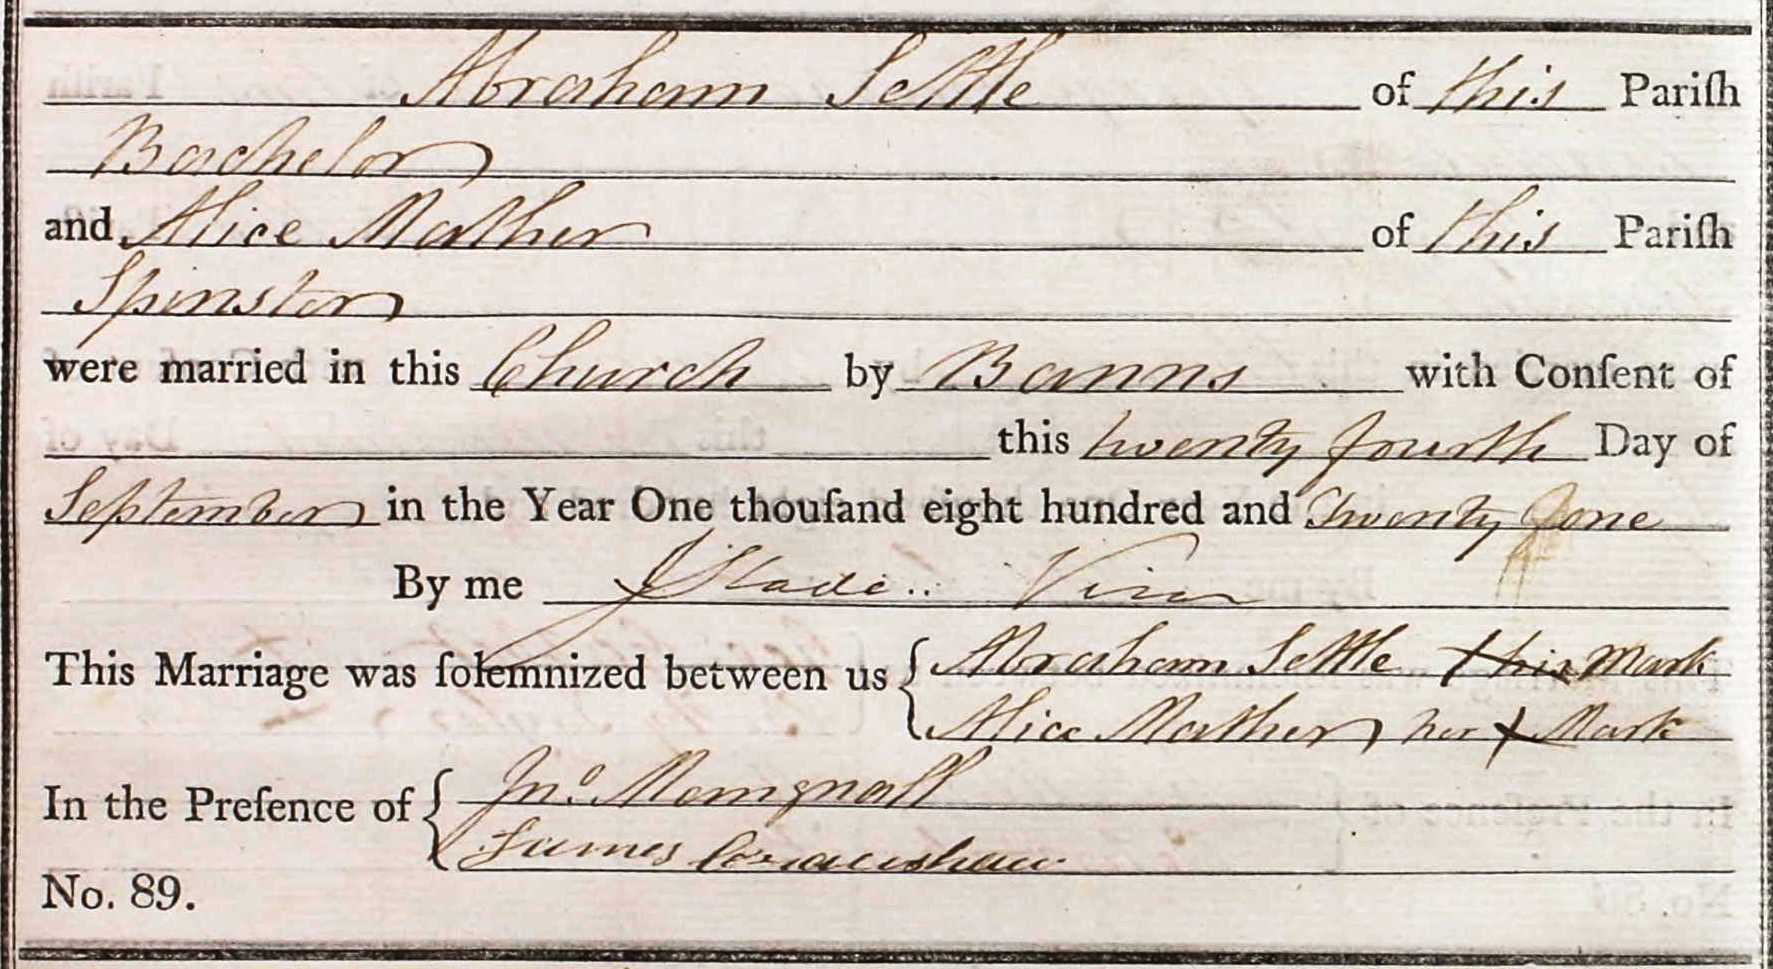 Abraham Settle of this Pariſh
Bachelor
and Alice Mather of this Pariſh
Spinster
were married in this Church by Banns with Conſent of
this twenty fourth Day of
September in the Year One thouſand eight hundred and Twenty one
By me J Slade.. Vicar
This Marriage was ſolemnized between us { Abraham Settle + his Mark
Alice Mather her + Mark
In the Preſence of { Jno. Mangnall
James Crawshaw
No. 89.